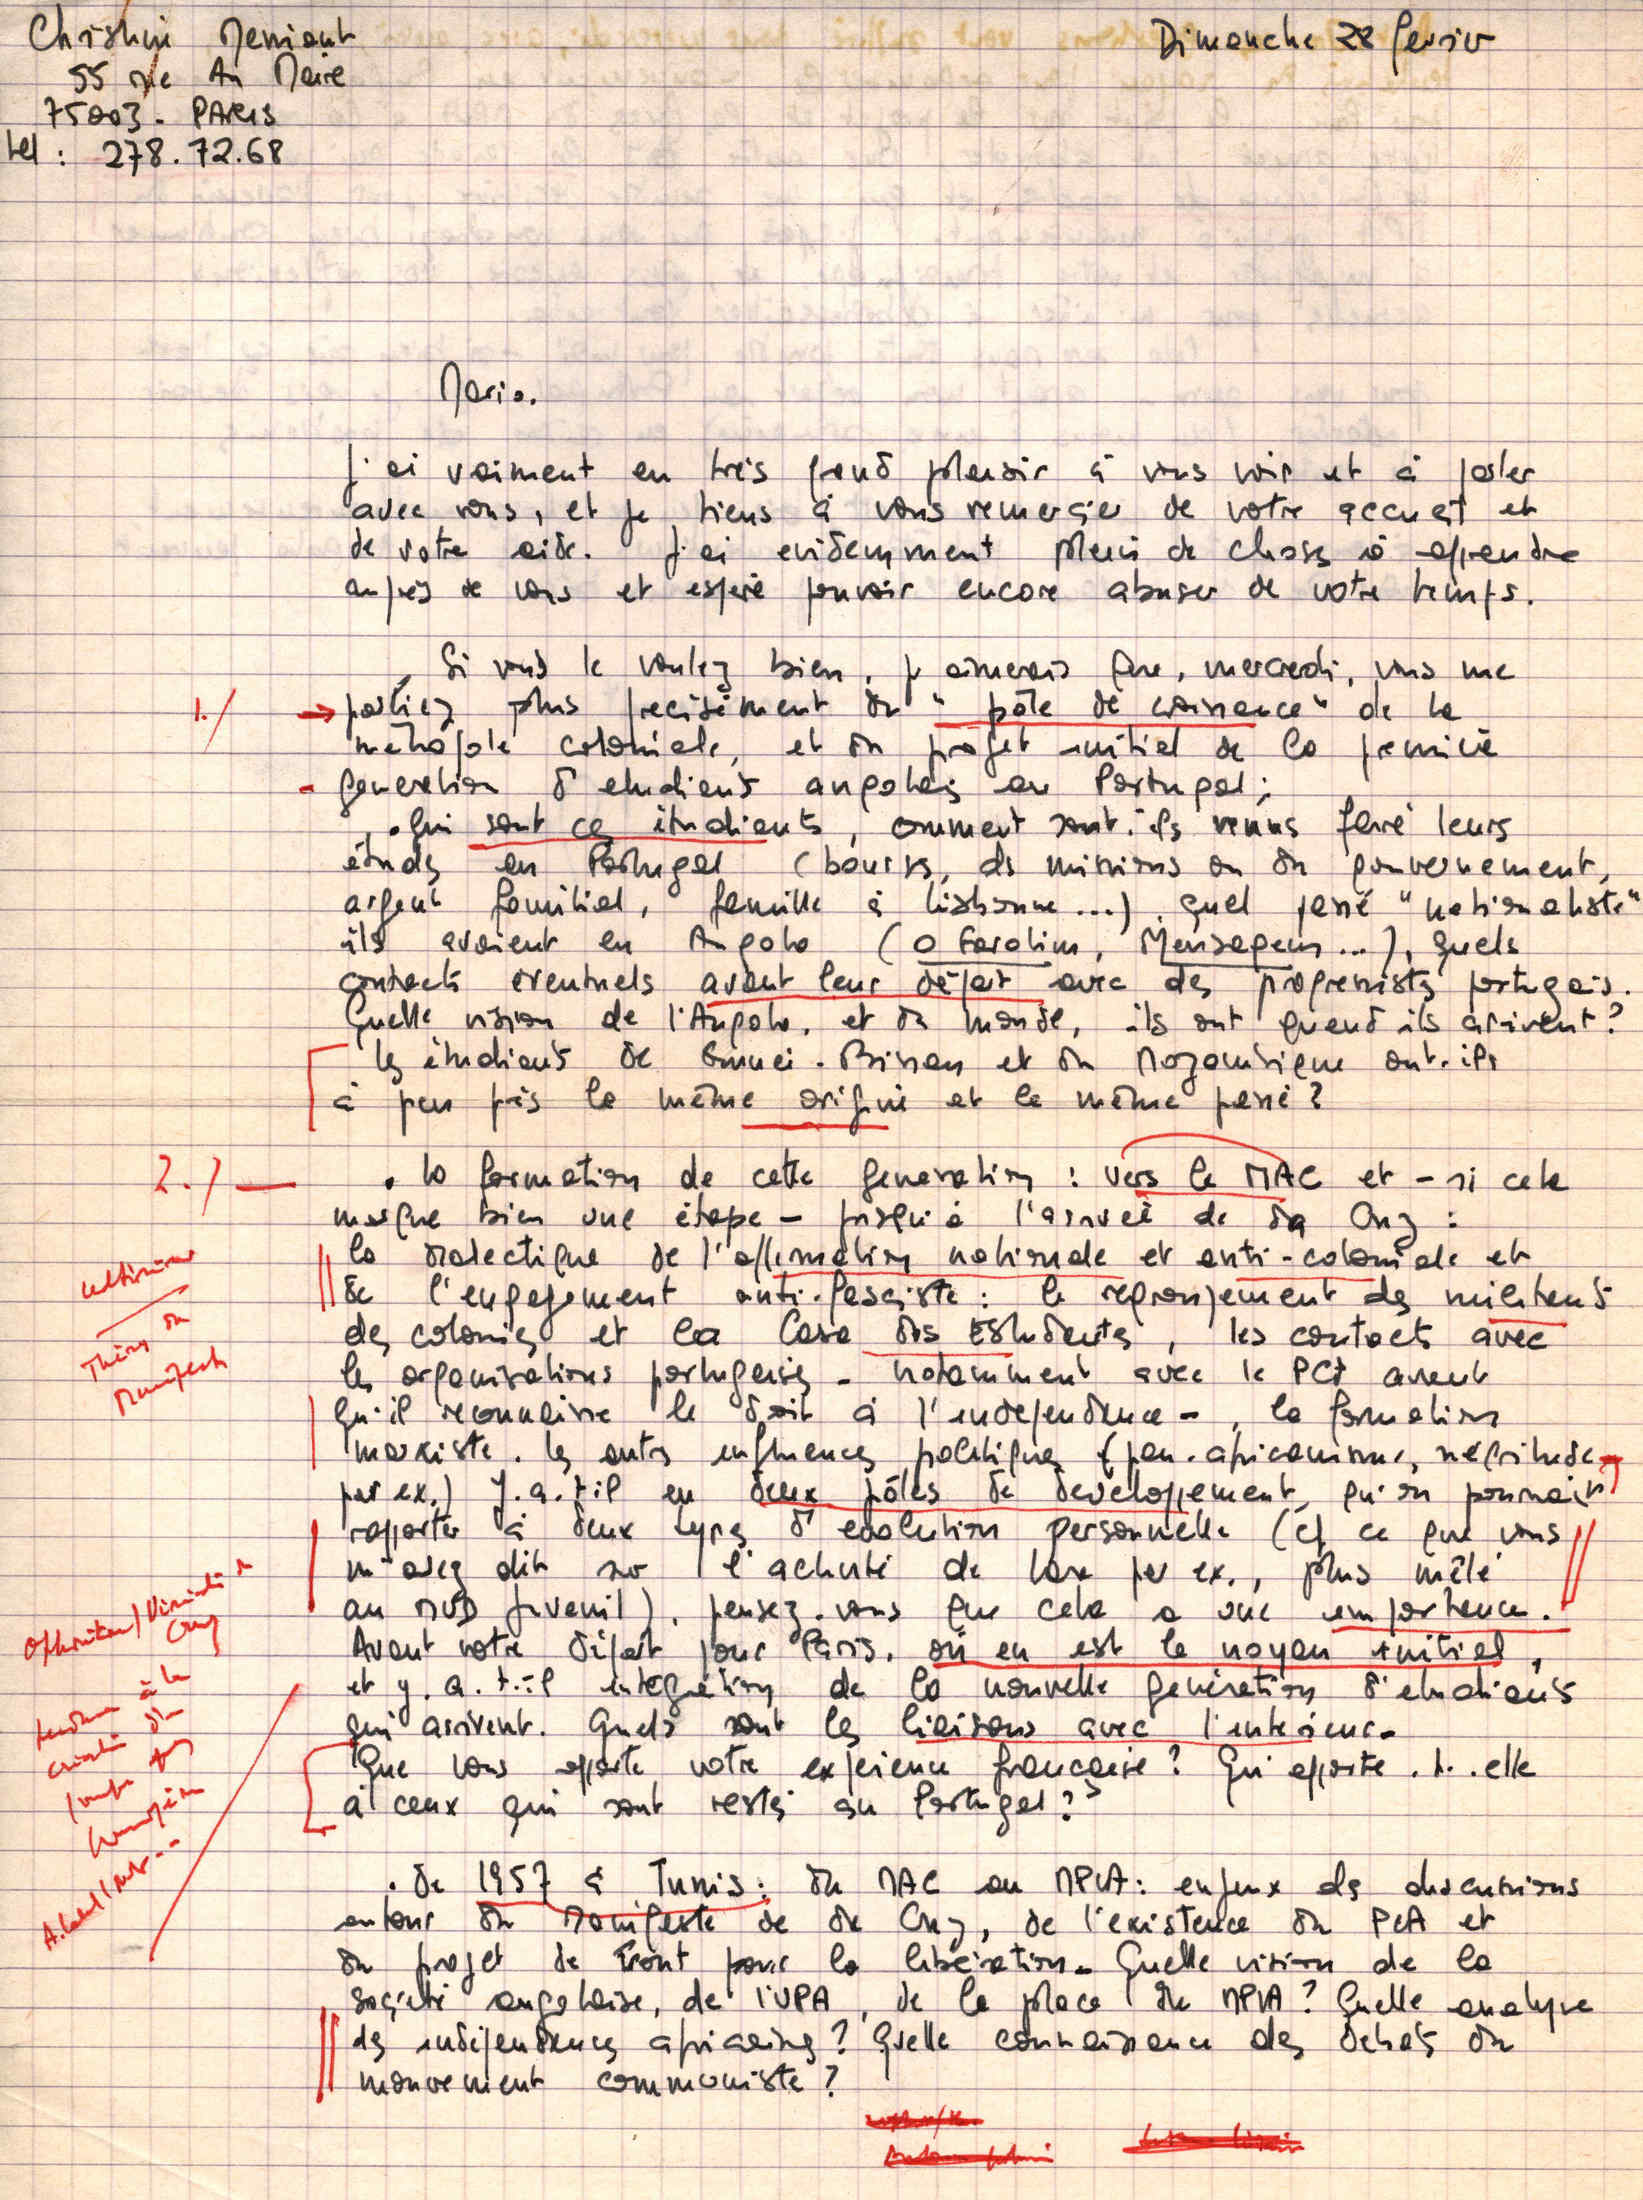 Christine Messiant
55 rue Au Maire
75003 - PARIS
tel : 278.72.68
Dimanche 28 fevrier
Mario.
J'ai vraiment eu très grand plaisir à vous voir et à parler
avec vous, et je tiens à vous remercier de votre accueil et
de votre aide. J'ai evidemment plein de choses à apprendre
auprès de vous et espère pouvoir encore abuser de votre temps.
. Si vous le voulez bien, j'aimerais que, mercredi, vous me
1./ → parliez plus precisément du "pôle de croissance" de la
métropole coloniale, et du projet initial de la première
- generation d'etudiants angolais au Portugal ;
. Qui sont ces étudiants, comment sont-ils venus faire leurs
études au Portugal (bourses, des missions ou du gouvernement,
argent familial, famille à Lisbonne...), quel passé "nationaliste"
ils avaient en Angola (O Farolim, Mensagem...), quels
contacts eventuels avant leur départ avec des progressistes portugais.
Quelle vision de l'Angola, et du monde, ils ont quand ils arrivent ?
Les étudiants de Guinée-Bissau et du Mozambique ont-ils
à peu près la même origine et le même passé ?
2./ — . la formation de cette generation : vers le MAC et - si cela
marque bien une étape - jusqu'à l'arrivée de Da Cruz :
la dialectique de l'affirmation nationale et anti-coloniale et
de l'engagement anti-fasciste : le regroupement des militants
des colonies et la Casa dos Estudantes, les contacts avec
les organisations portugaises - notamment avec le PCP avant
qu'il reconnaisse le droit à l'independance -, la formation
marxiste. les autres influences politiques (pan-africanisme, négritude
par ex.) Y.a.t-il eu deux pôles de développement, qu'on pourrait
rapporter à deux types d'evolution personnelle (cf ce que vous
m'avez dit sur l'activité de Lara par ex., plus mêlé
au MUD juvenil), pensez-vous que cela a une importance.
Avant votre départ pour Paris, où en est le noyau initial,
et y.a.t-il intégration de la nouvelle génération d'etudiants
qui arrivent. Quels sont les liaisons avec l'interieur.
Que vous apporte votre experience française ? Qu'apporte.t.elle
à ceux qui sont restés au Portugal ?
. De 1957 à Tunis : du MAC au MPLA : enjeux des discussions
autour du Manifeste de da Cruz, de l'existence du PCA et
du projet de Front pour la libération. Quelle vision de la
société angolaise, de l'UPA, de la place du MPLA ? Quelle analyse
des indépendances africaines ? Quelle connaissance des débats du
mouvement communiste ?
Manifeste